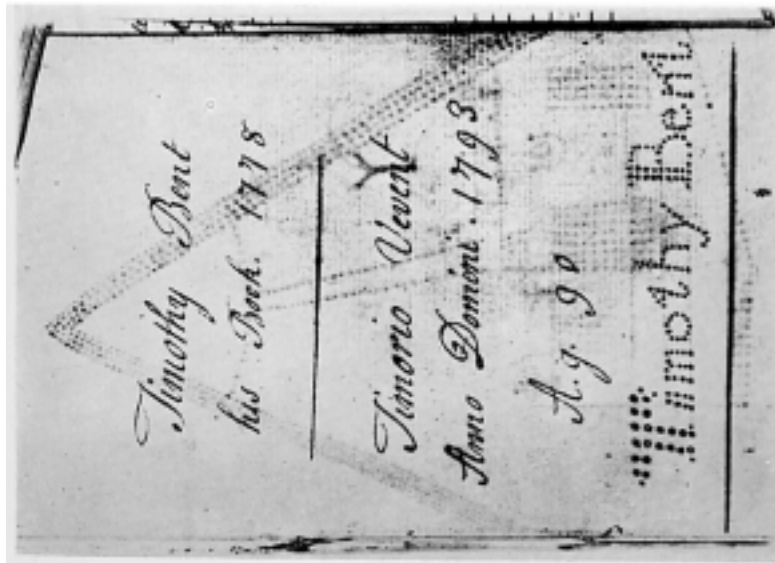 Timothy Bent
his Book. 1778
Timorio Vevent
Anno Domini. 1793
A.g. 90
Timothy Bent